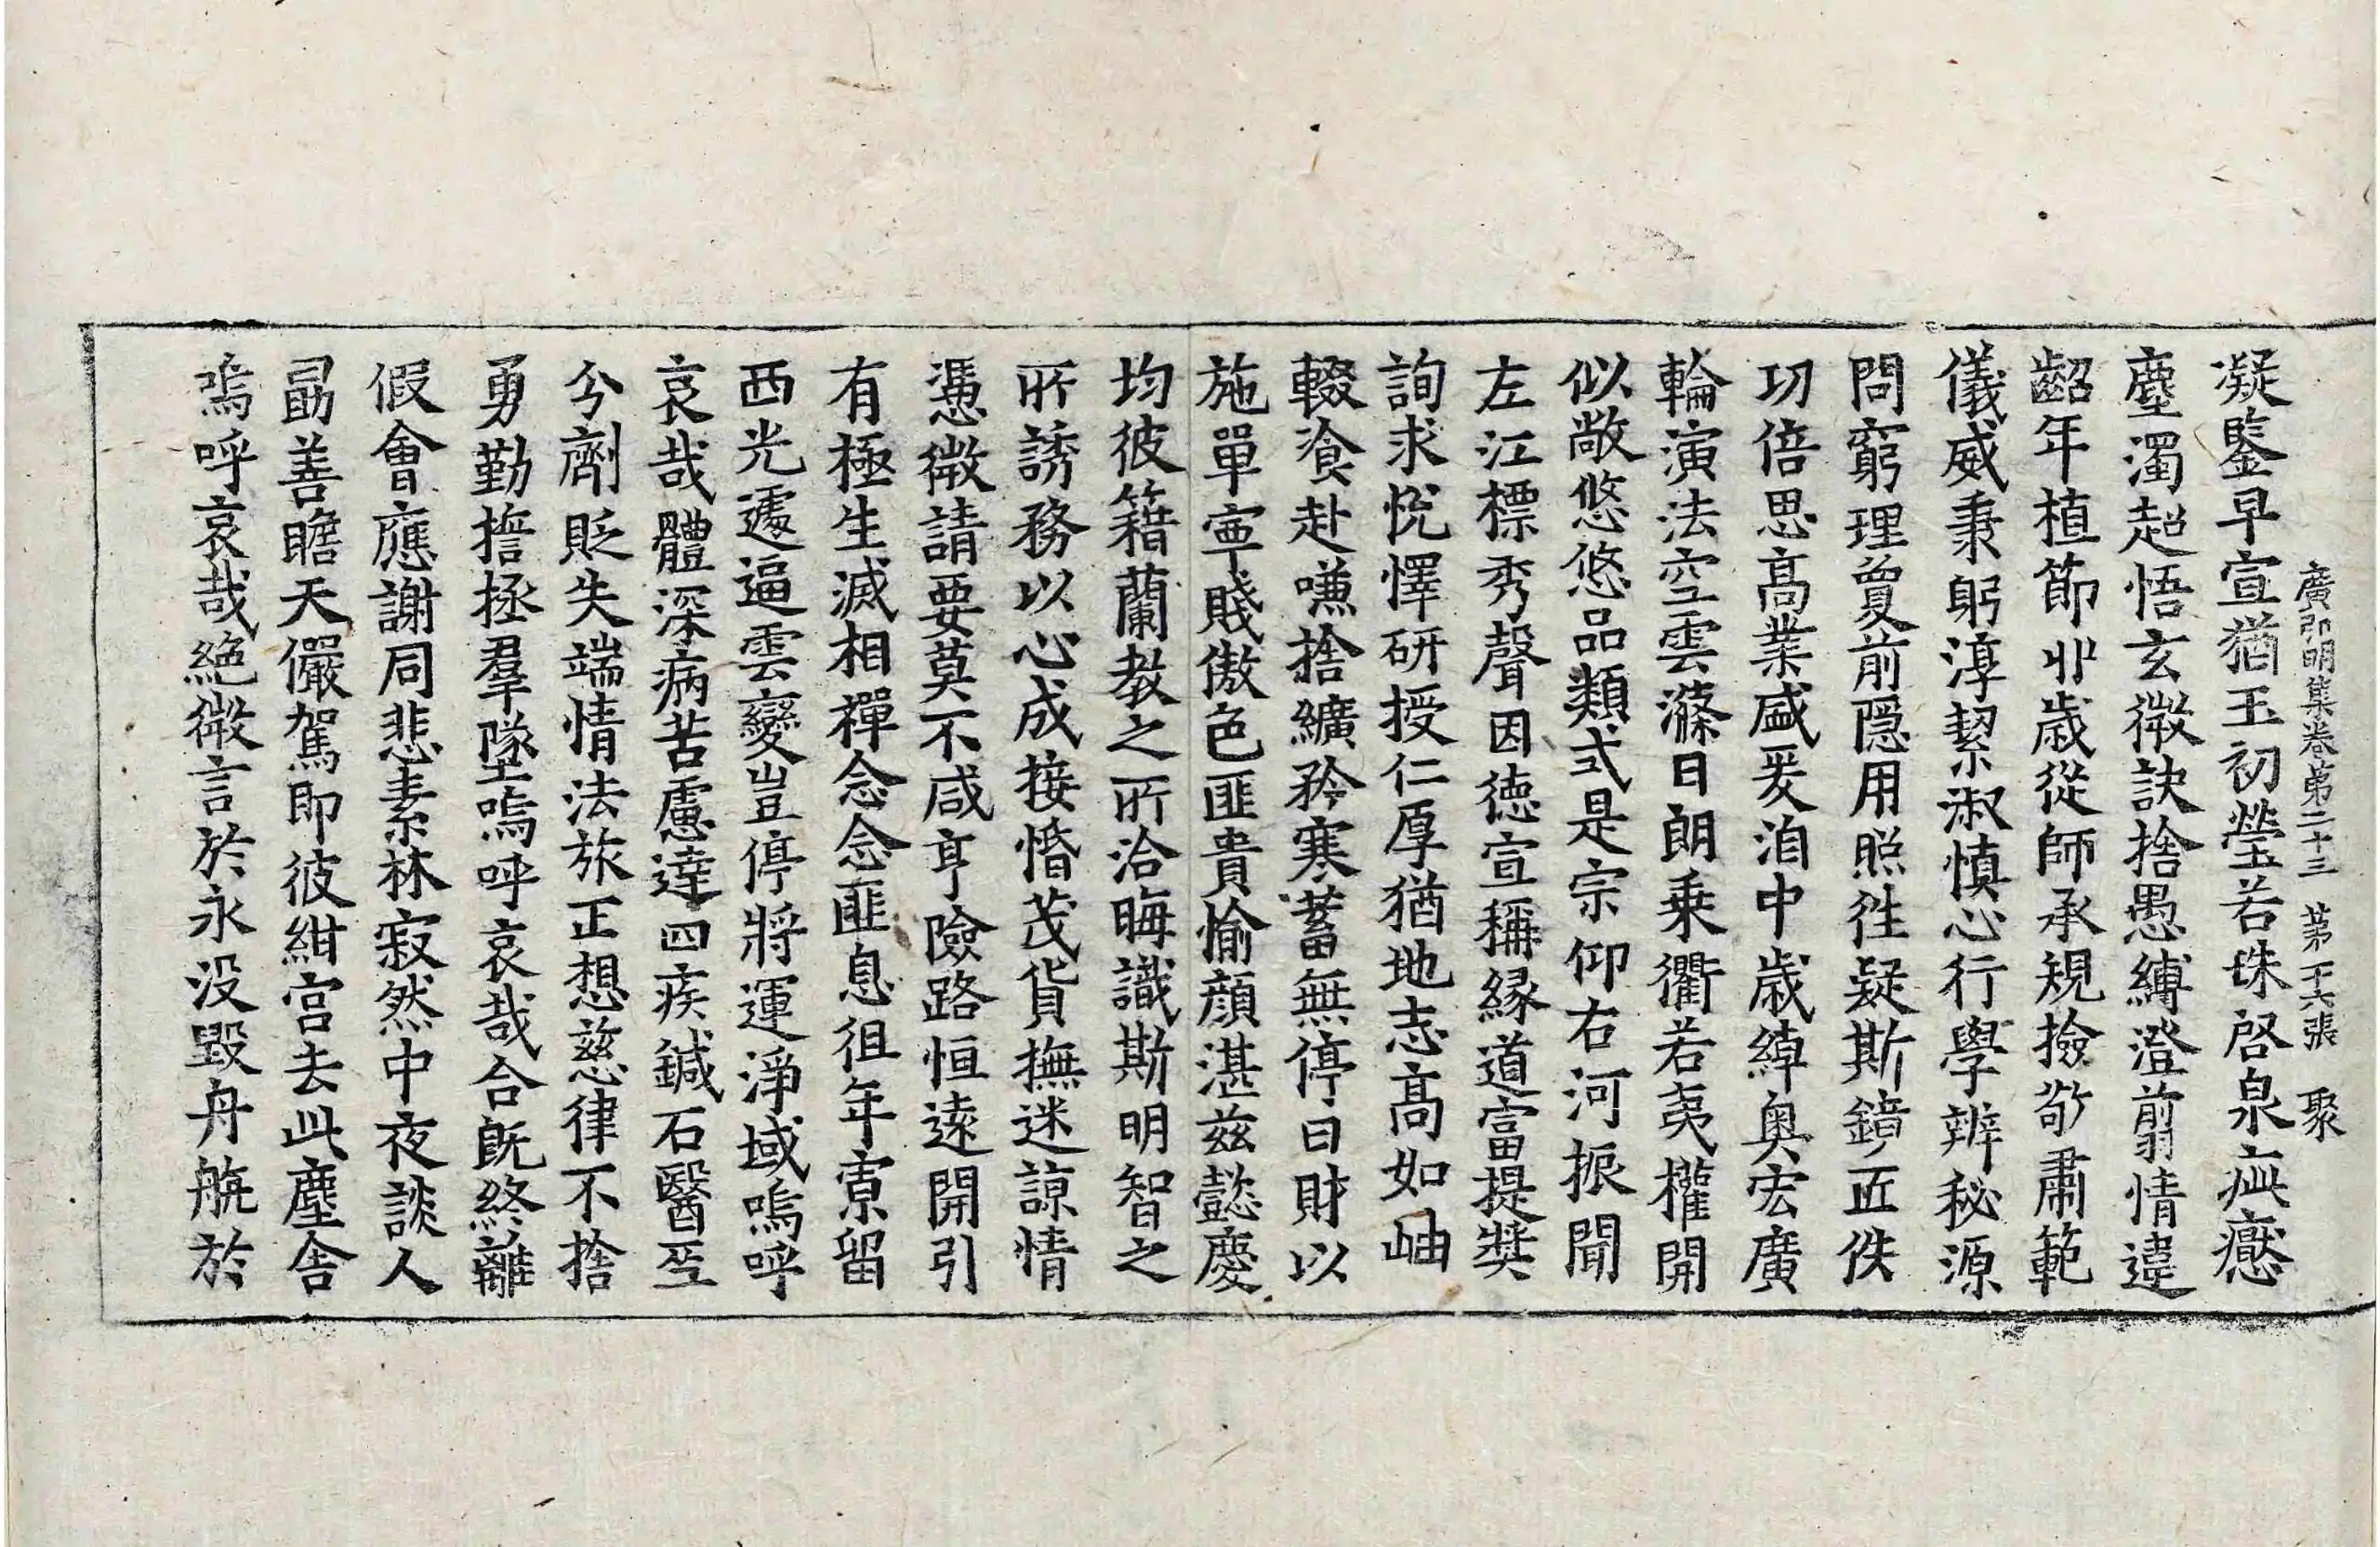 廣弘明集卷第二十三 第十六張 聚
凝鑒早宣猶玉初瑩若珠啓泉疵癋
塵濁超悟玄微訣捨愚縛澄翦情違
齠年植節丱歲從師承規撿敬肅範
儀威秉躬淳絜淑慎心行學辨秘源
問窮理𧵍前隱用照往疑斯鏡匝佚
功倍思高業盛爰洎中歲綽奧宏廣
輪演法空雲滌日朗乘衢若夷權開
似敞悠悠品類式是宗仰右河振聞
左江標秀聲因德宣稱緣道富提獎
詢求悅懌研授仁厚猶地志高如岫
輟飡赴嗛捨纊矜寒蓄無停日財以
施單寧賤傲色匪貴愉顏湛茲懿慶
均彼籍蘭教之所洽晦識斯明智之
所誘務以心成接惛茂貨撫迷諒情
憑微請要莫不咸亨險路恒遠開引
有極生滅相禪念念匪息徂年寡留
西光遽逼雲變豈停將運淨域嗚呼
哀哉體深病苦慮達四疾鍼石醫巫
兮劑貶失端情法旅正想慈律不捨
勇勤撎拯羣墜嗚呼哀哉合既終離
假會應謝同悲素林寂然中夜談人
勗善瞻天儼駕即彼紺宮去此塵舍
嗚呼哀哉絕微言於永沒毀舟航於